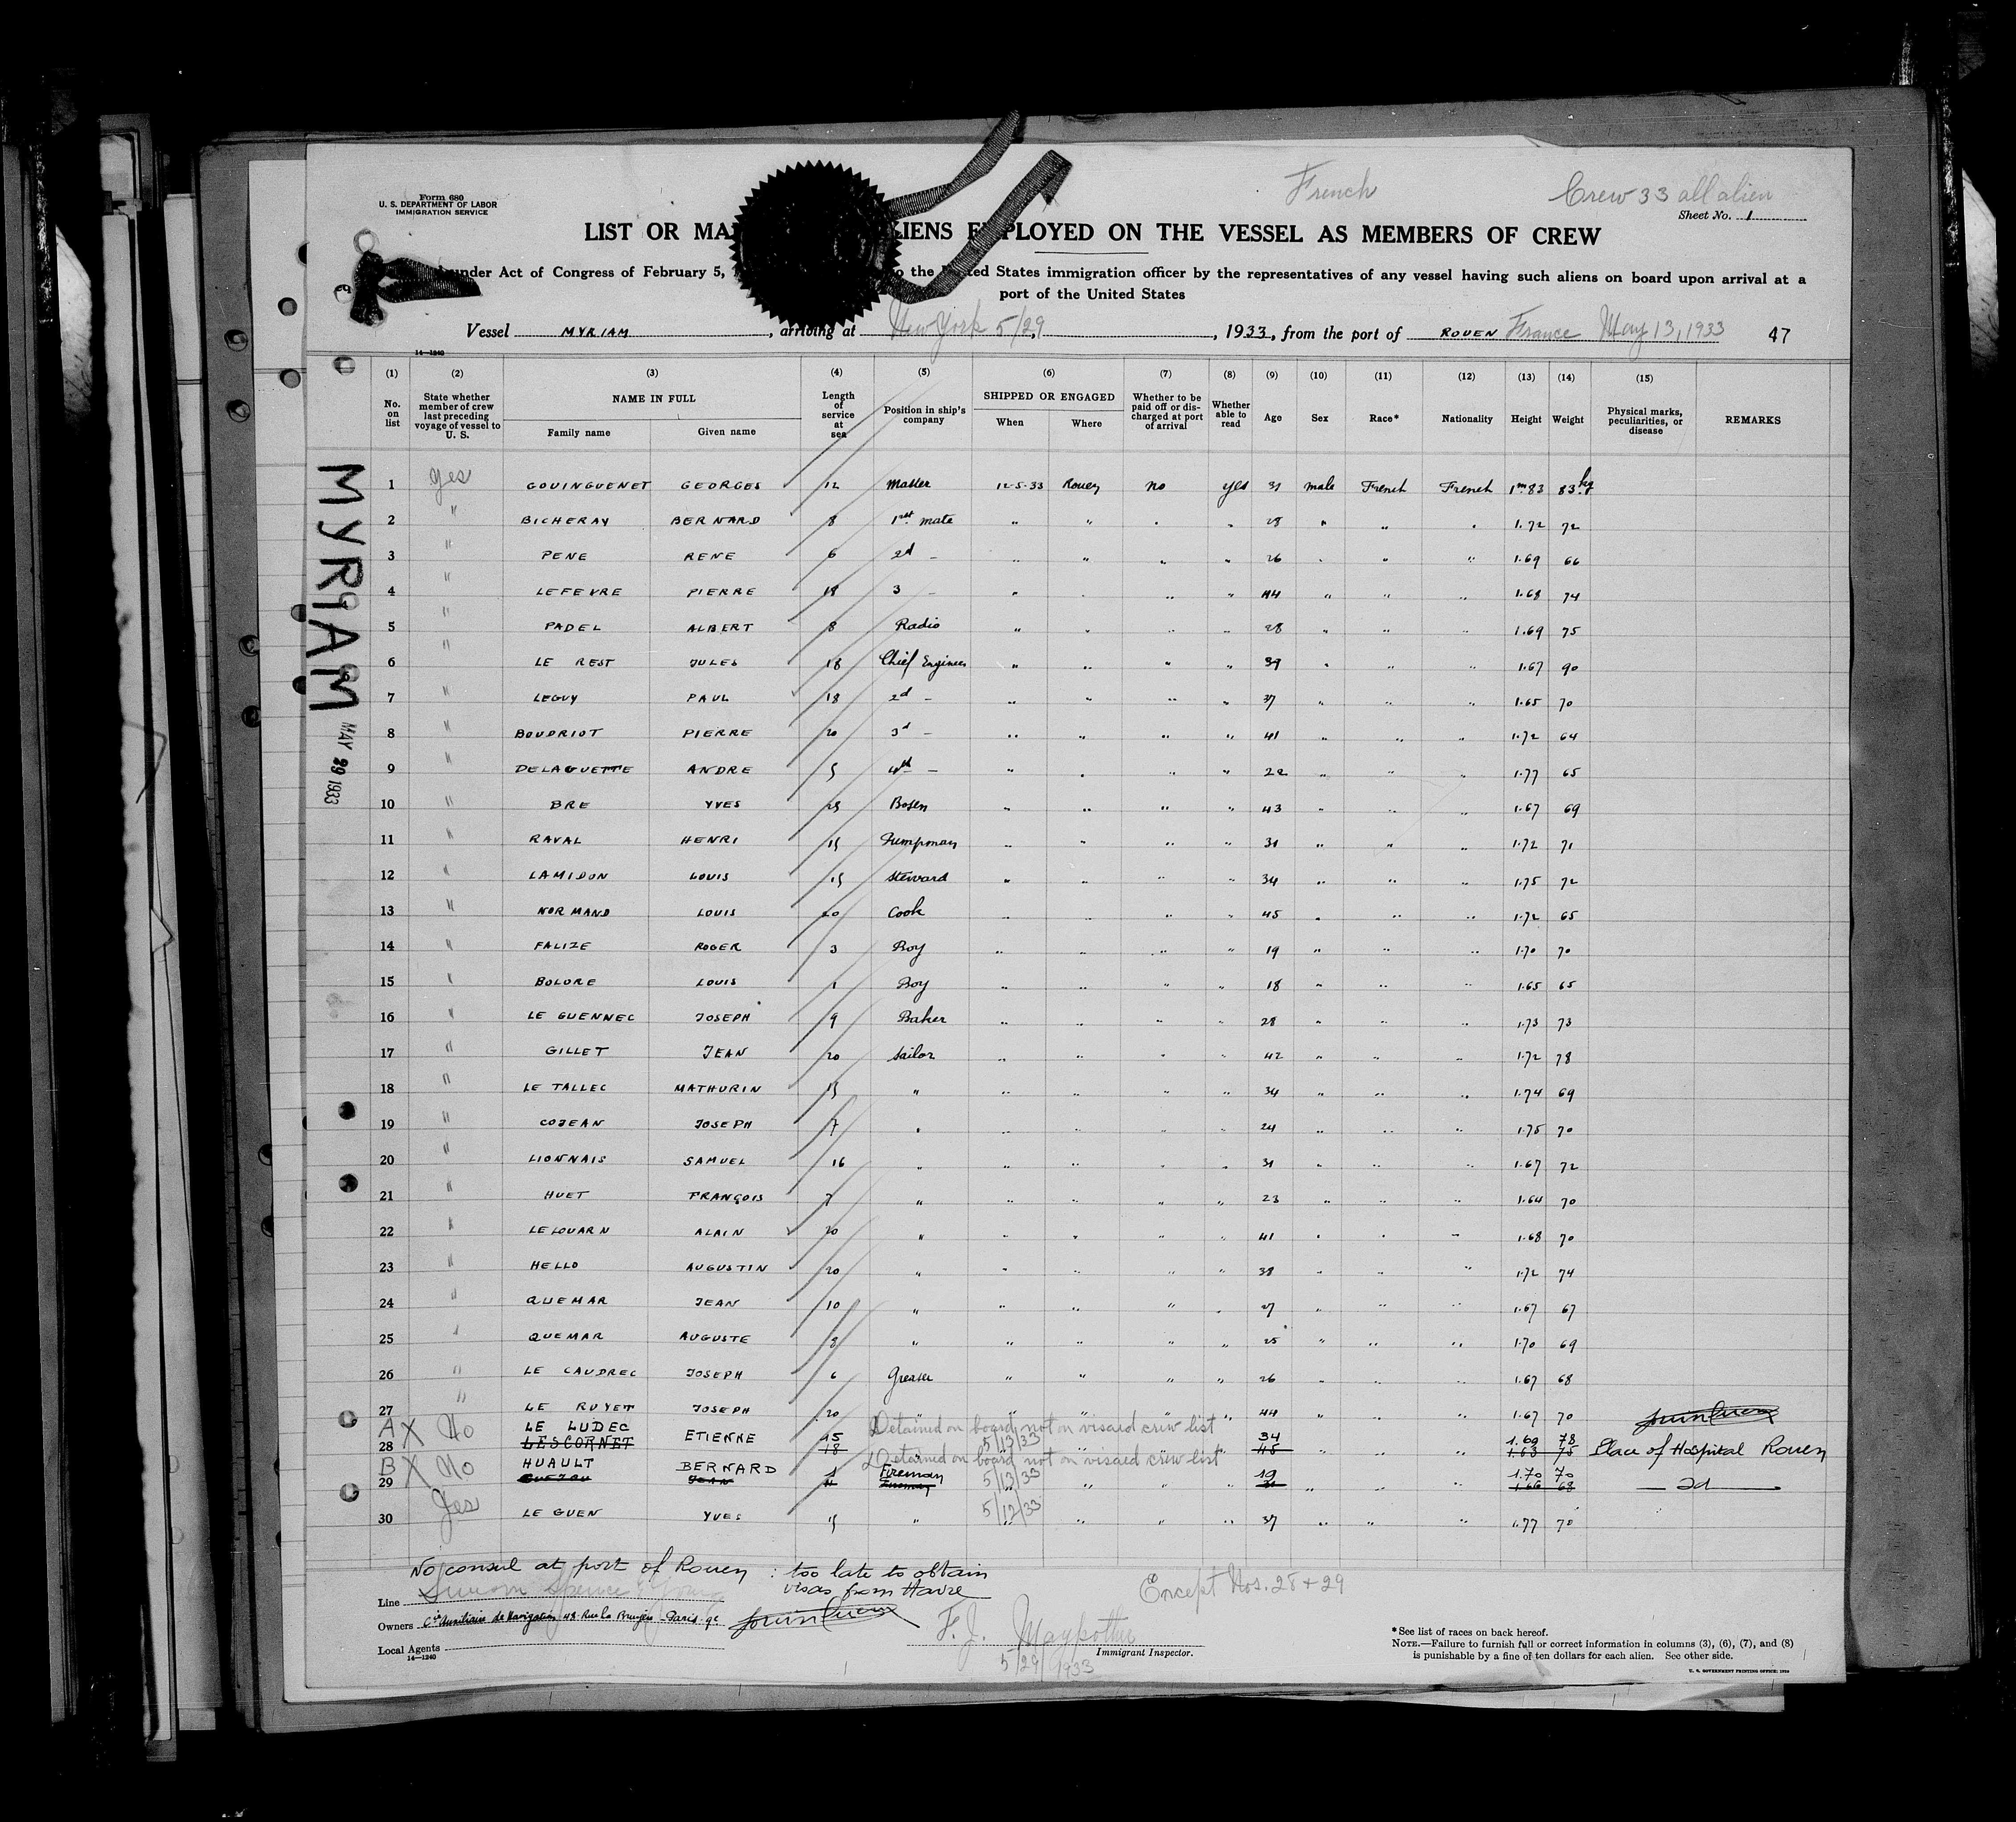 Form 680
U. S. DEPARTMENT OF LABOR
IMMIGRATION SERVICE
French
Crew 33 all alien
Sheet No. 1
LIST OR MA LIENS EMPLOYED ON THE VESSEL AS MEMBERS OF CREW
under Act of Congress of February 5, to the United States immigration officer by the representatives of any vessel having such aliens on board upon arrival at a
port of the United States
Vessel MYRIAM, arriving at New York 5/29, 1933, from the port of ROUEN France May 13, 1933 47
14—1240
(1) (2) (3) (4) (5) (6) (7) (8) (9) (10) (11) (12) (13) (14) (15)
No. on list
State whether member of crew last preceding voyage of vessel to U. S.
NAME IN FULL
Family name Given name
Length of service at sea
Position in ship's company
SHIPPED OR ENGAGED
When Where
Whether to be paid off or discharged at port of arrival
Whether able to read
Age Sex Race* Nationality Height Weight
Physical marks, peculiarities, or disease
REMARKS
MYRIAM
MAY 29 1933
1 Yes GOUINGUENET GEORGES 12 Master 12-5-33 Rouen no yes 31 male French French 1m83 83kg
2 " BICHERAY BERNARD 8 1rst mate " " " " 28 " " " 1.72 72
3 " PENE RENE 6 2d — " " " " 26 " " " 1.69 66
4 " LEFEVRE PIERRE 18 3 — " " " " 44 " " " 1.68 74
5 " PADEL ALBERT 8 Radio " " " " 28 " " " 1.69 75
6 " LE REST JULES 18 Chief Engineer " " " " 39 " " " 1.67 90
7 " LEGUY PAUL 18 2d — " " " " 37 " " " 1.65 70
8 " BOUDRIOT PIERRE 20 3d — " " " " 41 " " " 1.72 64
9 " DELAGUETTE ANDRE 5 4th — " " " " 22 " " " 1.77 65
10 " BRE YVES 25 Bosen " " " " 43 " " " 1.67 69
11 " RAVAL HENRI 15 Pumpman " " " " 31 " " " 1.72 71
12 " LAMIDON LOUIS 15 Steward " " " " 34 " " " 1.75 72
13 " NORMAND LOUIS 20 Cook " " " " 45 " " " 1.72 65
14 " FALIZE ROGER 3 Boy " " " " 19 " " " 1.70 70
15 " BOLORE LOUIS 1 Boy " " " " 18 " " " 1.65 65
16 " LE GUENNEC JOSEPH 9 Baker " " " " 28 " " " 1.73 73
17 " GILLET JEAN 20 Sailor " " " " 42 " " " 1.72 78
18 " LE TALLEC MATHURIN 15 " " " " " 34 " " " 1.74 69
19 " COJEAN JOSEPH 7 " " " " " 24 " " " 1.75 70
20 " LIONNAIS SAMUEL 16 " " " " " 31 " " " 1.67 72
21 " HUET FRANÇOIS 7 " " " " " 23 " " " 1.64 70
22 " LELOUARN ALAIN 20 " " " " " 41 " " " 1.68 70
23 " HELLO AUGUSTIN 20 " " " " " 38 " " " 1.72 74
24 " QUEMAR JEAN 10 " " " " " 27 " " " 1.67 67
25 " QUEMAR AUGUSTE 8 " " " " " 25 " " " 1.70 69
26 " LE CAUDREC JOSEPH 6 Greaser " " " " 26 " " " 1.67 68
27 " LE RUYET JOSEPH 20 " " " " " 44 " " " 1.67 70
A X No LE LUDEC Detained on board not on visaed crew list
28 LESCORNET ETIENNE 15 18 5/13/33 " " " 34 45 " " " 1.69 78 1.63 75 Place of Hospital Rouen
B X No HUAULT BERNARD Detained on board not on visaed crew list
29 JEAN 1 Fireman 5/13/33 " " " 19 " " " 1.70 70 1.66 68 — 2d —
30 Yes LE GUEN YVES 15 " 5/12/33 " " " 37 " " " 1.77 70
No consul at port of Rouen : too late to obtain
visas from Havre
Except Nos. 28 + 29
Line
Owners Cie Auxiliaire de Navigation 48 Rue la Bruyère Paris 9e
Local Agents
14—1240
F. J. Maypother
Immigrant Inspector.
5/29/1933
*See list of races on back hereof.
NOTE.—Failure to furnish full or correct information in columns (3), (6), (7), and (8)
is punishable by a fine of ten dollars for each alien. See other side.
U. S. GOVERNMENT PRINTING OFFICE: 1930